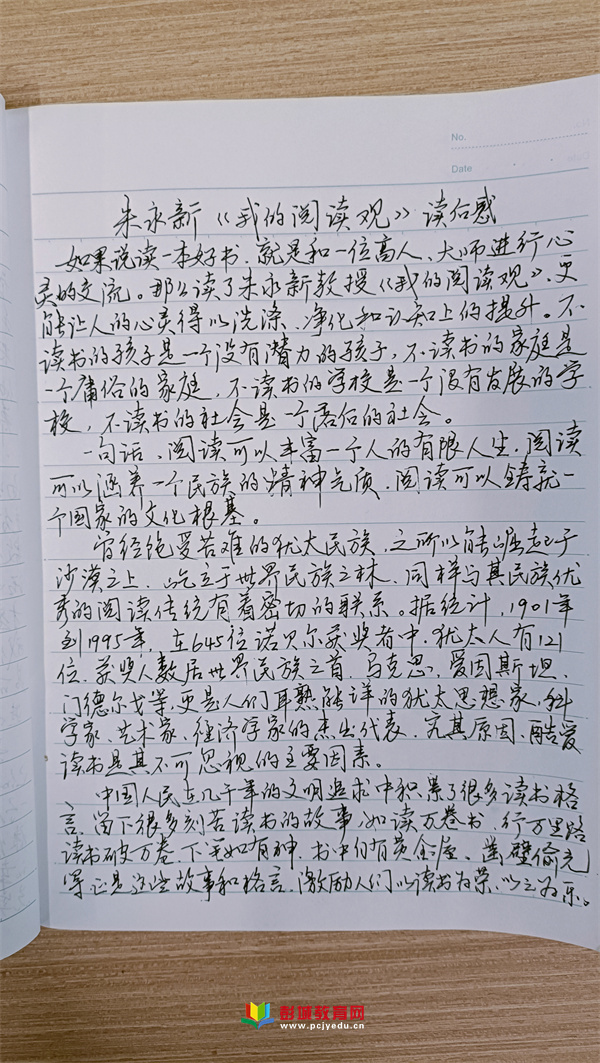 No.
Date
朱永新《我的阅读观》读后感
如果说读一本好书,就是和一位高人、大师进行心
灵的交流。那么读了朱永新教授《我的阅读观》,更
能让人的心灵得以洗涤、净化和认知上的提升。不
读书的孩子是一个没有潜力的孩子,不读书的家庭是
一个庸俗的家庭,不读书的学校是一个没有发展的学
校,不读书的社会是一个落后的社会。
一句话,阅读可以丰富一个人的有限人生,阅读
可以涵养一个民族的精神气质,阅读可以铸就一
个国家的文化根基。
曾经饱受苦难的犹太民族,之所以能崛起于
沙漠之上,屹立于世界民族之林,同样与其民族优
秀的阅读传统有着密切的联系。据统计,1901年
到1995年,在645位诺贝尔获奖者中,犹太人有121
位,获奖人数居世界民族之首,马克思,爱因斯坦,
门德尔戈等,更是人们耳熟能详的犹太思想家,科
学家,艺术家,经济学家的杰出代表,究其原因,酷爱
读书是其不可忽视的主要因素。
中国人民在几千年的文明追求中积累了很多读书格
言,留下很多刻苦读书的故事,如读万卷书,行万里路
读书破万卷,下笔如有神,书中自有黄金屋,凿壁偷光
等,正是这些故事和格言,激励人们以读书为荣,以之为乐。
彭城教育网
www.pcjyedu.cn